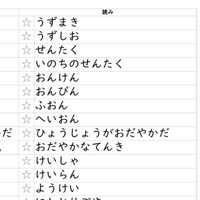 読み
☆ うずまき
☆ うずしお
☆ せんたく
☆ いのちのせんたく
☆ おんけん
☆ おんびん
☆ ふおん
☆ へいおん
だ ☆ ひょうじょうがおだやかだ
☆ おだやかなてんき
☆ けいしゃ
☆ けいらん
☆ ようけい